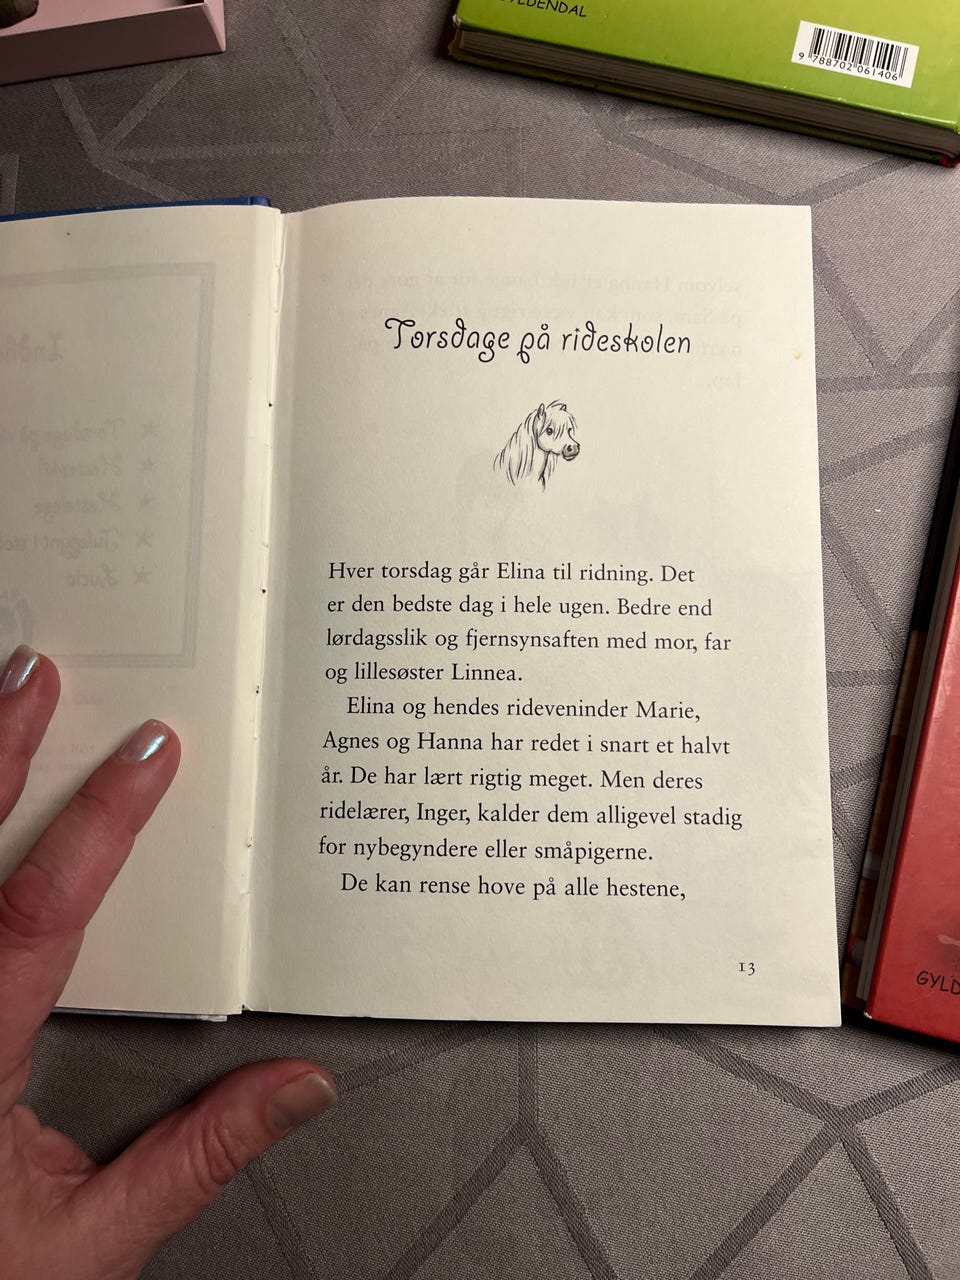 GYLDENDAL
9 788702 061406
Torsdage på rideskolen
Hver torsdag går Elina til ridning. Det
er den bedste dag i hele ugen. Bedre end
lørdagsslik og fjernsynsaften med mor, far
og lillesøster Linnea.
Elina og hendes rideveninder Marie,
Agnes og Hanna har redet i snart et halvt
år. De har lært rigtig meget. Men deres
ridelærer, Inger, kalder dem alligevel stadig
for nybegyndere eller småpigerne.
De kan rense hove på alle hestene,
13
GYLD